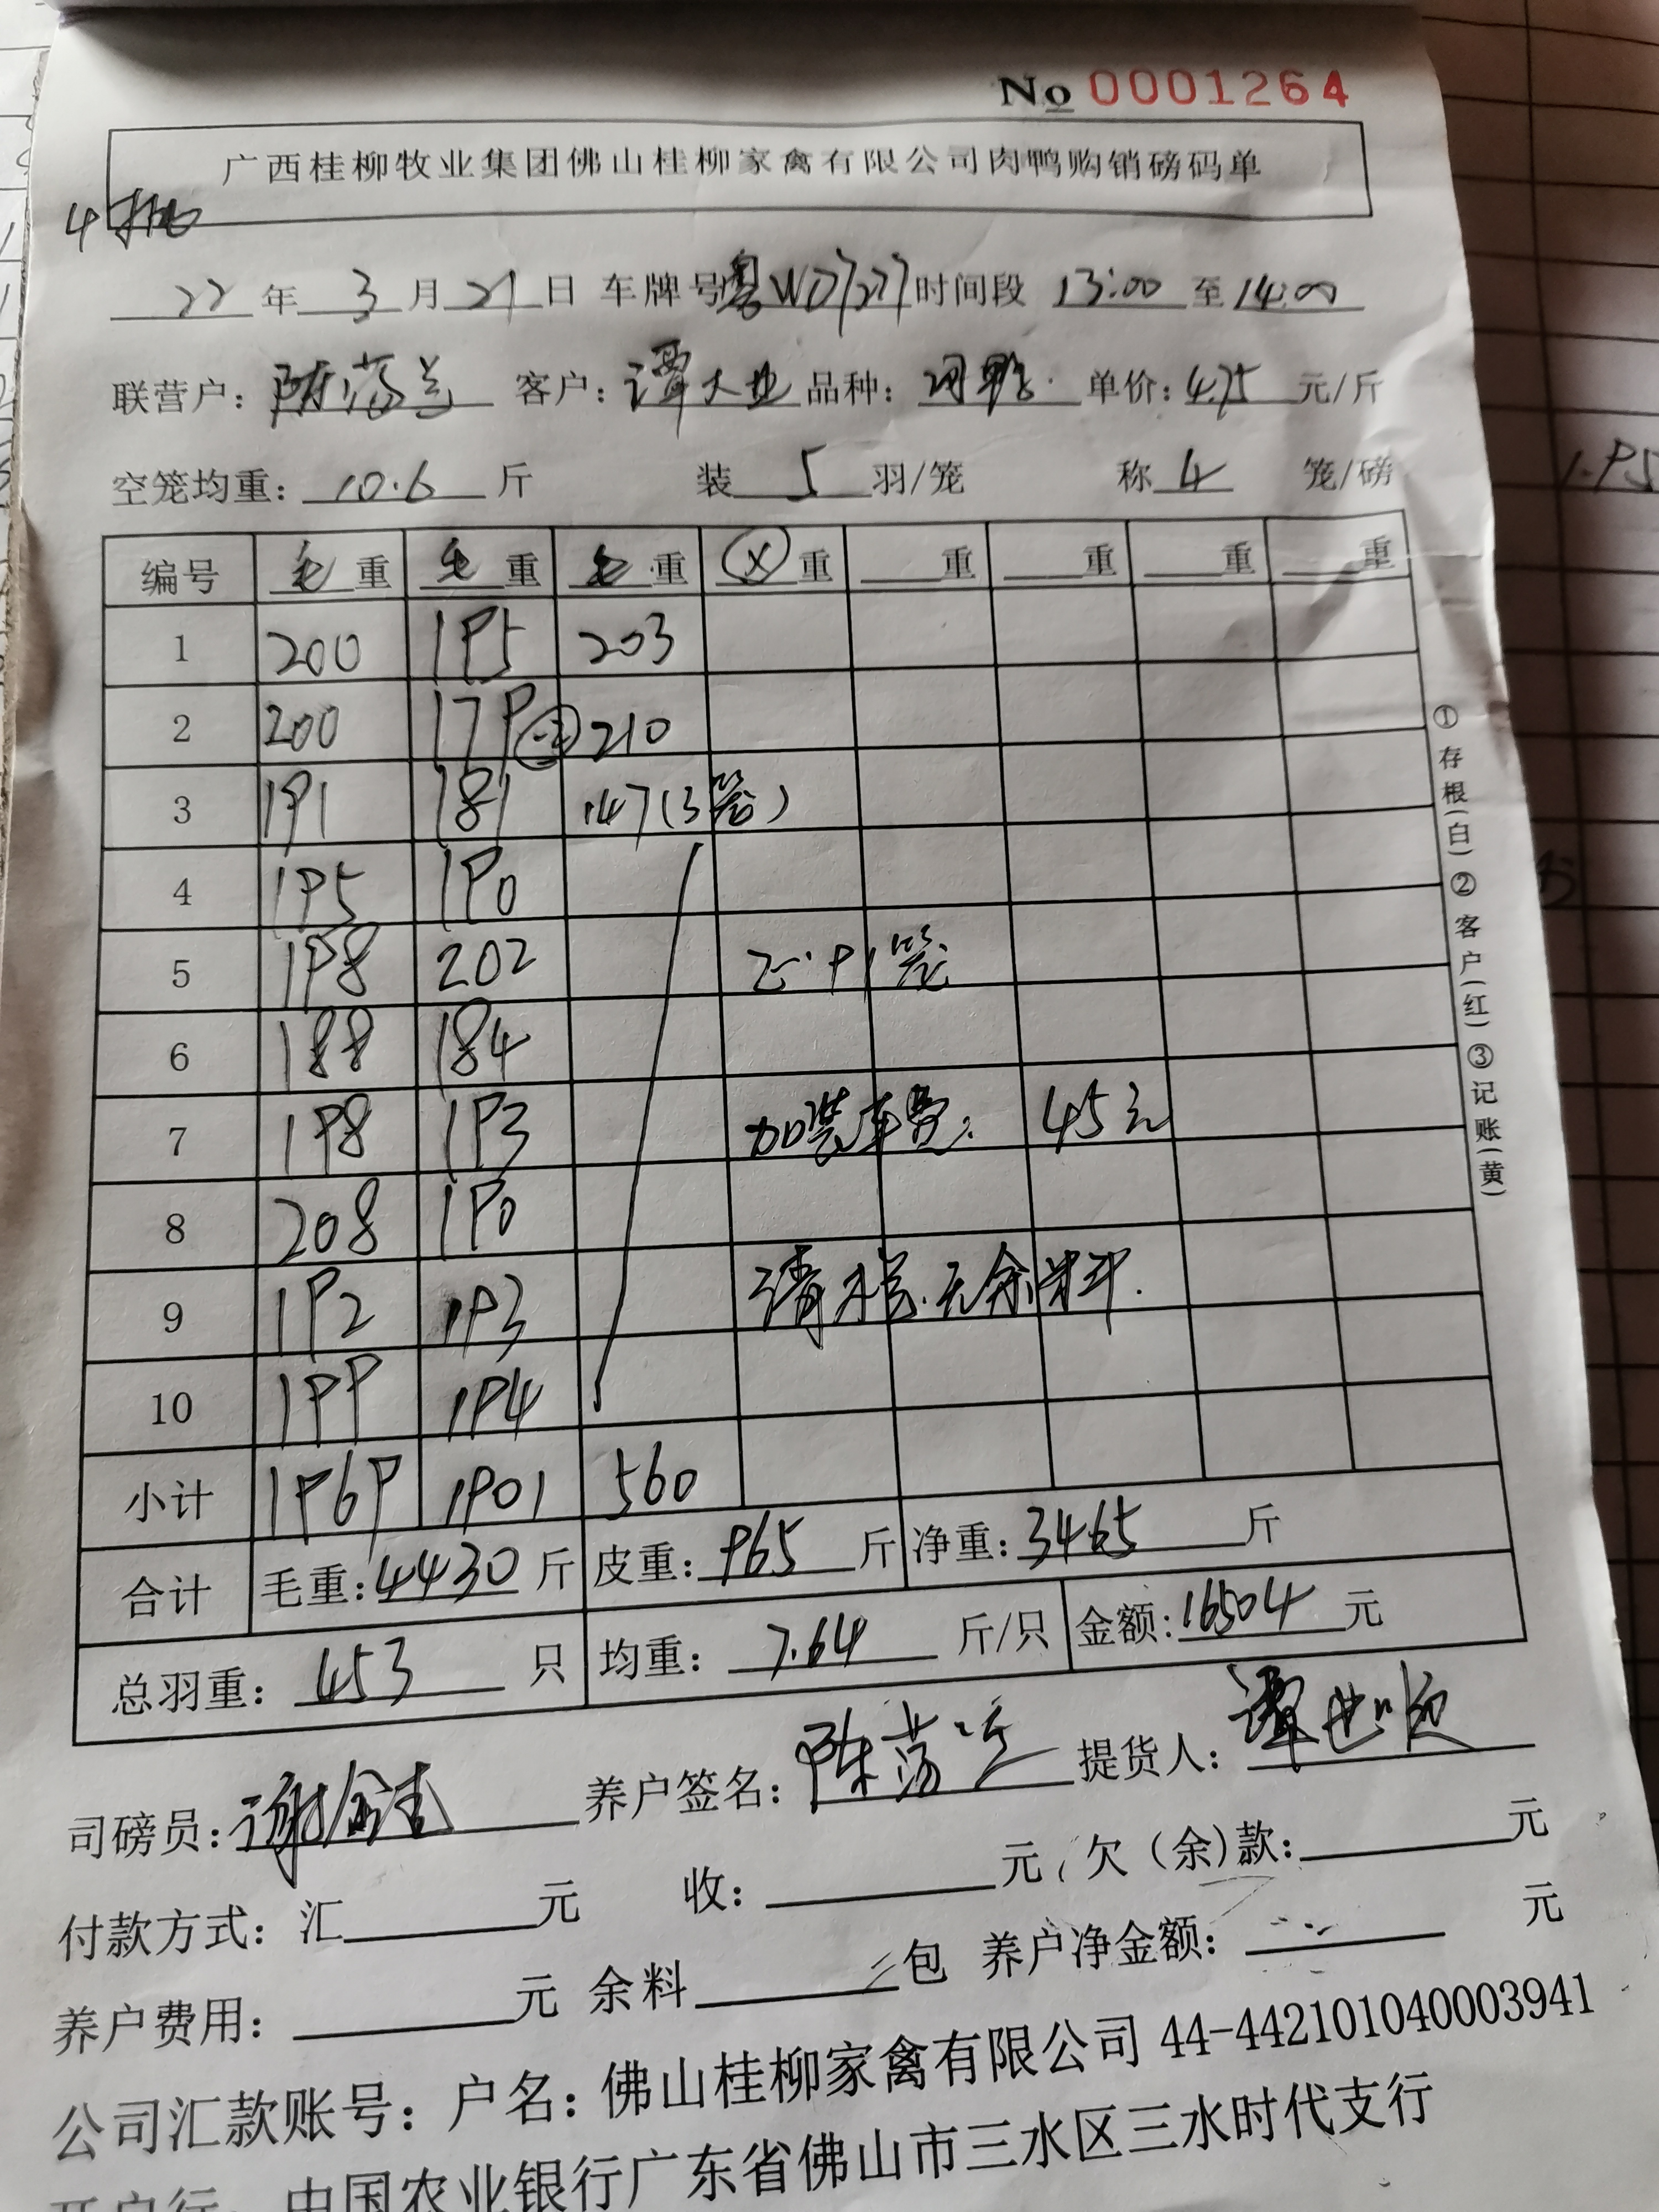 No 0001264
广西桂柳牧业集团佛山桂柳家禽有限公司肉鸭购销磅码单
4批
22年 3月 21日 车牌号 粤WD7277 时间段 13:00 至 14:00
联营户: 陈 客户: 谭大业 品种: 单价: 4.75 元/斤
空笼均重: 10.6 斤 装 5 羽/笼 称 4 笼/磅
编号 毛重 毛重 毛重 重 重 重 重 重
1 200 195 203
2 200 179 (-2) 210
3 191 181 147(3笼)
4 195 190
5 198 202 91笼
6 188 184
7 198 193 加装车费: 45元
8 208 190
9 192 193 清 无余料.
10 199 194
小计 1969 1901 560
合计 毛重: 4430 斤 皮重: 965 斤 净重: 3465 斤
总羽重: 453 只 均重: 7.64 斤/只 金额: 16504 元
司磅员: 谢 养户签名: 陈 提货人: 谭
付款方式: 汇 元 收: 元, 欠(余)款: 元
养户费用: 元 余料 包 养户净金额: 元
公司汇款账号: 户名: 佛山桂柳家禽有限公司 44-442101040003941
开户行: 中国农业银行广东省佛山市三水区三水时代支行
①存根(白)②客户(红)③记账(黄)
1.95